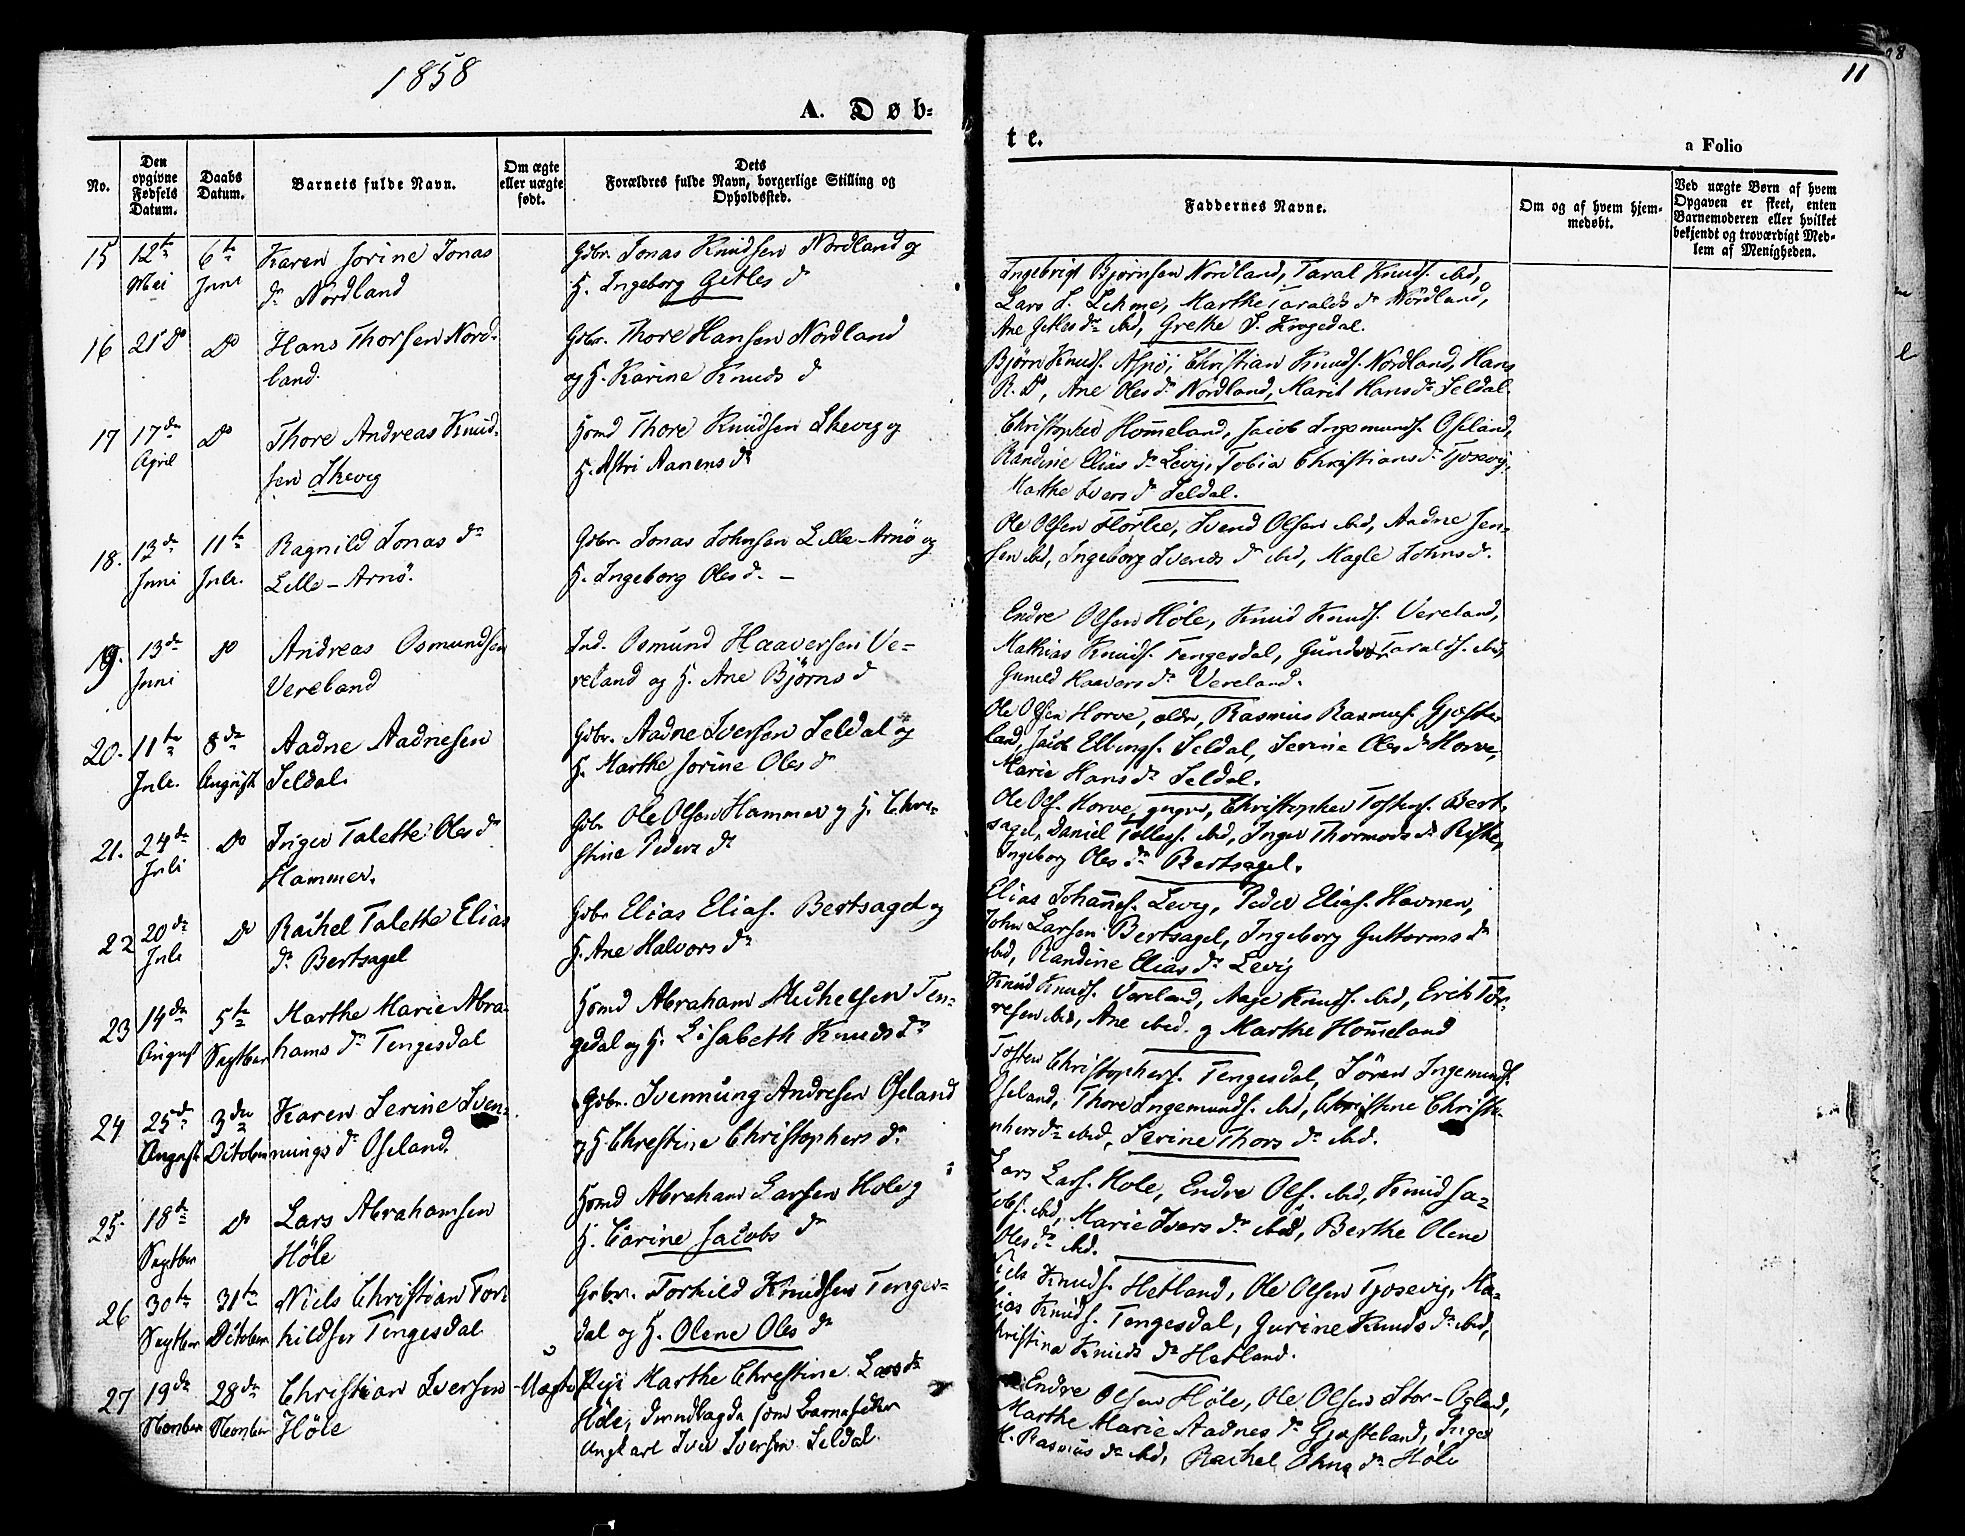 1858
11
A. Døb-
te.
a Folio
No.
Den opgivne Fødsels Datum.
Daabs Datum.
Barnets fulde Navn.
Om ægte eller uægte født.
Dets Forældres fulde Navn, borgerlige Stilling og Opholdssted.
Faddernes Navne.
Om og af hvem hjem-
medøbt.
Ved uægte Børn af hvem
Opgaven er skeet, enten
Barnemoderen eller hvilket
bekjendt og troværdigt Med-
lem af Menigheden.
15 12te Mai 6te Juni
Karen Jorine Jonas
dr Nordland
Gdbr. Jonas Knudsen Nordland og
H. Ingeborg Getles d
Ingebrigt Bjørnsen Nordland, Taral Knuds. ibid,
Lars S. Marthe Taralds dr Nordland,
Ane Getles dr ibid, Grethe S.
16 21 Do Do
Hans Thorsen Nord-
land.
Gdbr. Thore Hansen Nordland
og H. Karine Knuds d
Bjørn Knuds. Christian Knuds. Nordland, Hans
R. Do, Ane Oles dr Nordland, Marit Hans dr Seldal.
17 17de April Do
Thore Andreas Knud-
sen Skevig
Hsmd Thore Knudsen Skevig og
H. Astri Aanens dr
Christopher Hommeland, Jacob Ingemunds. Oseland,
Randine Elias dr Levig, Tobia Christians dr Tjosevig,
Marthe Ivers dr Seldal.
18. 13de Juni 11te Jule.
Ragnild Jonas dr
Lille-Arnö.
Gdbr. Jonas Johnsen Lille-Arnö og
H. Ingeborg Oles d. –
Ole Olsen Svend Olsen ibid, Aadne Jen-
sen ibid, Ingeborg Svends dr ibid, Magle Johns d.
19. 13de Juni Do
Andreas Osmundsen
Vereland
Ind. Osmund Haaversen Ve-
reland og H. Ane Bjørns d
Endre Olsen Höle, Knud Knuds. Vereland,
Mathias Knuds. Tengesdal, Gundvor Taralds. ibid,
Gunild Haavers dr Vereland.
20. 11te Jule. 8de August
Aadne Aadnesen
Seldal.
Gdbr. Aadne Iversen Seldal og
H. Marthe Jorine Oles dr
Ole Olsen Horve, ældr, Rasmus Rasmus. Gjeste-
land, Jacob Ellings. Seldal, Serine Oles dr Horve,
Marie Hans dr Seldal.
21. 24de Juli Do
Inger Talette Oles dr
Hammer.
Gdbr Ole Olsen Hammer og H. Chri-
stine Peders dr
Ole Ols. Horve, yngre, Christopher Tostens. Bert-
sagel, Daniel Tolless. ibid, Inger Thormods dr Riske,
Ingeborg Oles dr Bertsagel.
22 20de Jule Do
Rachel Talette Elias
dr Bertsagel
Gdbr Elias Elias. Bertsagel og
H. Ane Halvors dr
Elias Johannes. Levig, Peder Elias. Havnen,
John Larsen Bertsagel, Ingeborg Guttorms dr
ibid, Randine Elias dr Levig
23 14de August 5te Septber
Marthe Marie Abra-
hams dr Tengesdal
Hsmd Abraham Michelsen Ten-
gedal og H. Lisabeth Knuds dr
Knud Knuds. Vereland, Aage Knuds. ibid, Erik Tor-
resen ibid, Ane ibid. og Marthe Hommeland
24 25de August 3die October
Karen Serine Sven-
nungs d Oseland.
Gdbr. Svennung Andresen Oseland
og H Chrestine Christophers dr
Tosten Christophers. Tengesdal, Sören Ingemunds.
Oseland, Thore Ingemunds. ibid, Christine Christo-
phers dr ibid, Serine Thors dr ibid.
25. 18de Septber Do
Lars Abrahamsen
Höle
Hsmd Abraham Larsen Hole og
H. Carine Jacobs dr
Lars Lars. Hole, Endre Ols. ibid, Knud Ja-
cobs. ibid, Marie Ivers dr ibid, Berthe Olene
Oles dr ibid.
26 30te Septber 31te October
Niels Christian Tor-
kildsen Tengesdal
Gdbr. Torkild Knudsen Tenges-
dal og H. Olene Oles dr
Niels Knuds. Hetland, Ole Olsen Tjosevig, Ma-
thias Knuds. Tengesdal, Gurine Knuds dr ibid,
Christina Knuds dr Hetland.
27 19de Novnber 28de Novnber
Christian Iversen
Höle
Uægte
Pige Marthe Chrestine Lars dr
Höle, som Barnefader
Ungkarl Iver Iversen Seldal.
Endre Olsen Höle, Ole Olsen Stor-Ogland,
Marthe Marie Aadnes dr Gjesteland, Inger
M. Rasmus dr ibid, Rachel dr Höle